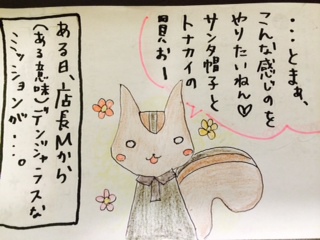 ・・・とまぁ、
こんな感じのを
やりたいねん♡
サンタ帽子と
トナカイの
買おー
ある日、店長Mから
(ある意味)デンジャラスな
ミッションが・・・。